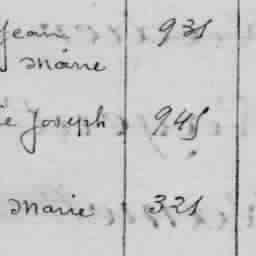 Jean 931
Marie
Joseph 945
Marie 321